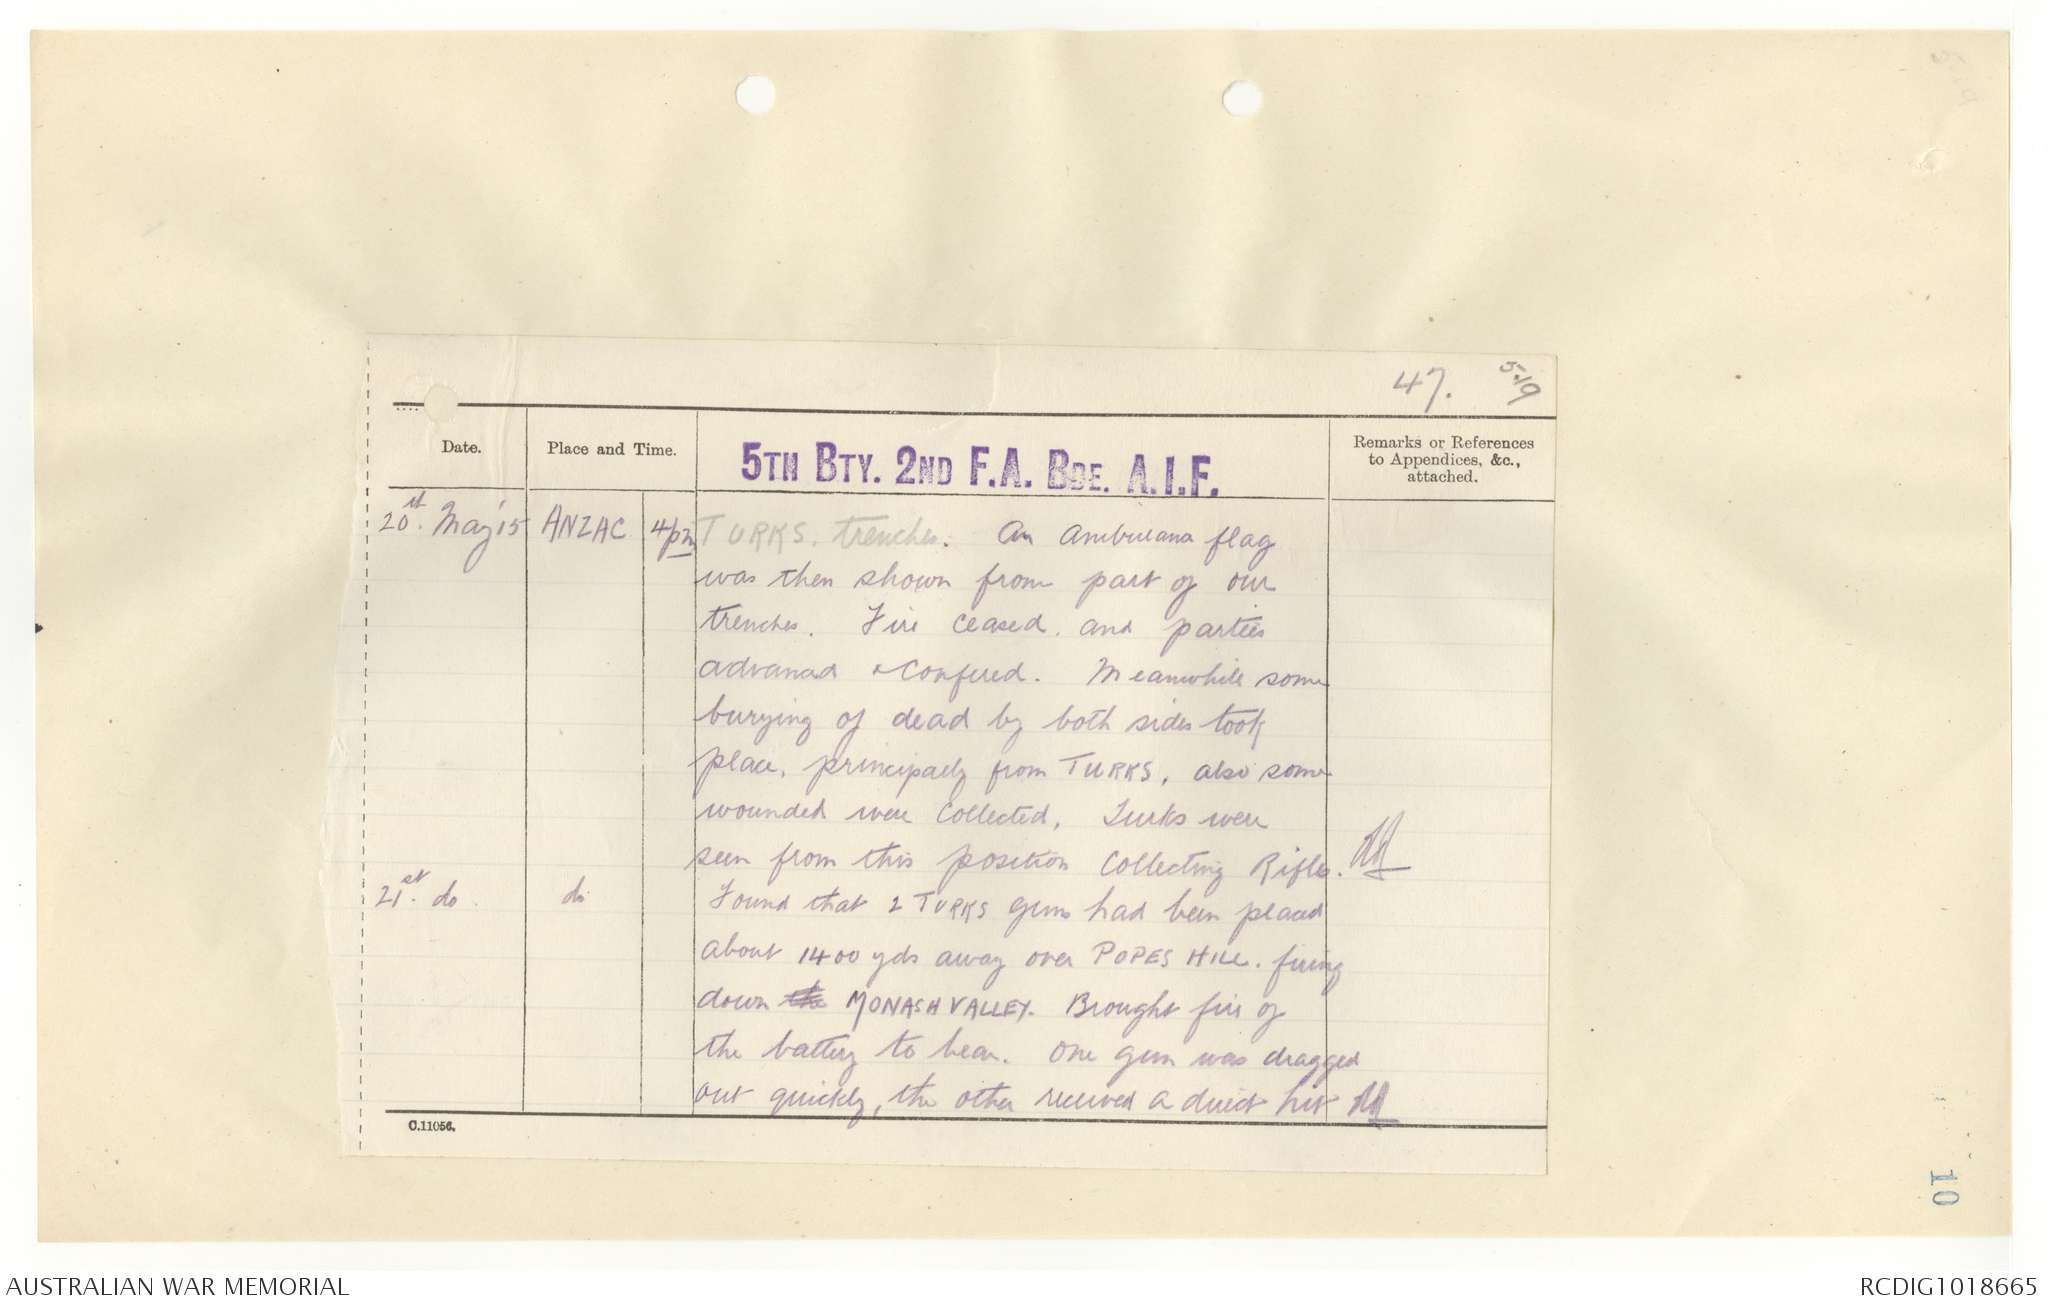 47.
5.19
Date.
Place and Time.
5TH BTY. 2ND F.A. BDE. A.I.F.
Remarks or References
to Appendices, &c.,
attached.
20st. May '15 ANZAC 4pm TURKS. trenches. An Ambulance flag
was then shown from part of our
trenches. Fire ceased. and parties
advanced & Conferred. Meanwhile some
burying of dead by both sides took
place, principally from TURKS, also some
wounded were Collected, Turks were
seen from this position Collecting Rifles.
21st. do. do Found that 2 TURKS guns had been placed
about 1400 yds away over POPES HILL. firing
down the MONASH VALLEY. Brought fire of
the battery to bear. One gun was dragged
out quickly, the other received a direct hit
C.11056.
10
AUSTRALIAN WAR MEMORIAL
RCDIG1018665